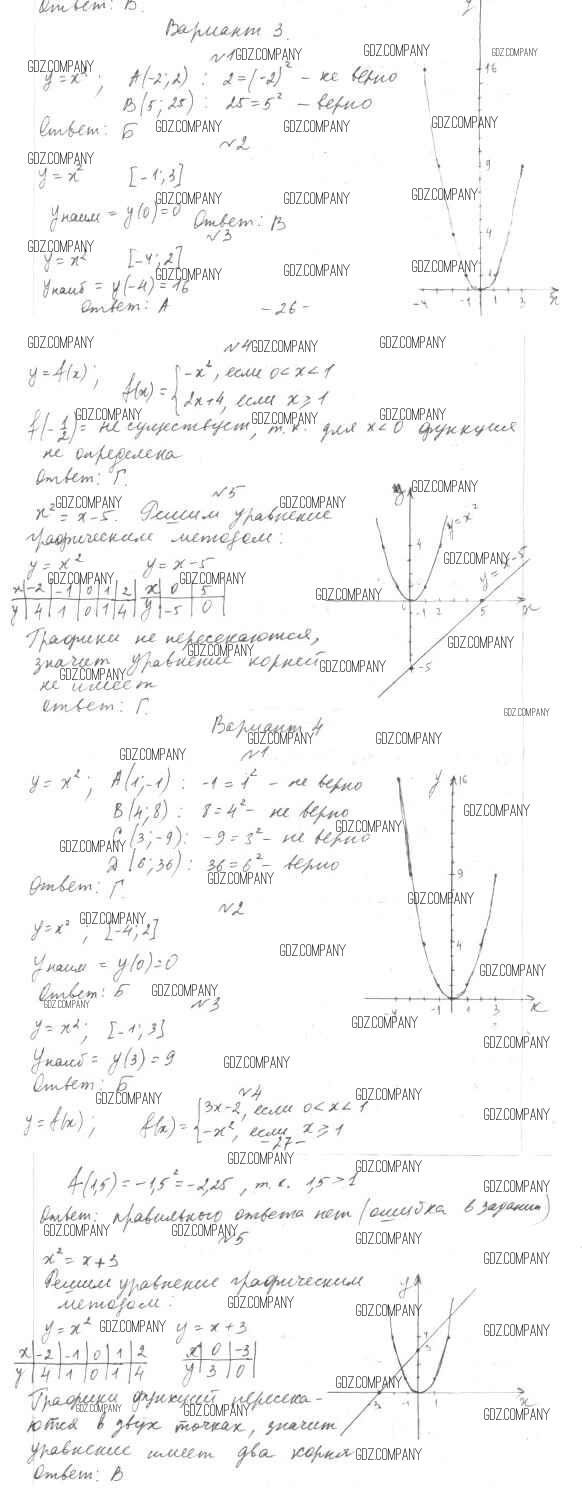 Ответ: В.
Вариант 3
№1
y = x²; A(-2; 2) : 2 = (-2)² - не верно
B(5; 25) : 25 = 5² - верно
Ответ: Б
№2
y = x² [-1; 3]
yнаим = y(0) = 0 Ответ: В
№3
y = x² [-4; 2]
yнаиб = y(-4) = 16
Ответ: А
-26-
y
16
9
4
1
-4 -1 1 3 x
№4
y = f(x); f(x) = { -x², если 0 < x < 1
2x+4, если x ≥ 1
f(-1/2) = не существует, т.к. для x < 0 функция
не определена
Ответ: Г.
№5
x² = x - 5. Решим уравнение
графическим методом:
y = x² y = x - 5
x | -2 | -1 | 0 | 1 | 2
y | 4 | 1 | 0 | 1 | 4
x | 0 | 5
y | -5 | 0
Графики не пересекаются,
значит уравнение корней
не имеет
Ответ: Г.
y
y = x²
y = x - 5
4
0 1 2 5 x
-5
Вариант 4
№1
y = x²; A(1; -1) : -1 = 1² - не верно
B(4; 8) : 8 = 4² - не верно
C(3; -9) : -9 = 3² - не верно
D(6; 36) : 36 = 6² - верно
Ответ: Г.
№2
y = x²; [-4; 2]
yнаим = y(0) = 0
Ответ: Б
№3
y = x²; [-1; 3]
yнаиб = y(3) = 9
Ответ: Б
y
16
9
4
-4 -1 1 3 x
№4
y = f(x); f(x) = { 3x-2, если 0 < x < 1
-x², если x ≥ 1
-27-
f(1,5) = -1,5² = -2,25, т.к. 1,5 > 1
Ответ: правильного ответа нет (ошибка в задании)
№5
x² = x + 3
Решим уравнение графическим
методом:
y = x² y = x + 3
x | -2 | -1 | 0 | 1 | 2
y | 4 | 1 | 0 | 1 | 4
x | 0 | -3
y | 3 | 0
Графики функций пересека-
ются в двух точках, значит
уравнение имеет два корня
Ответ: В
y
4
3
-3 1 x
GDZ.COMPANY